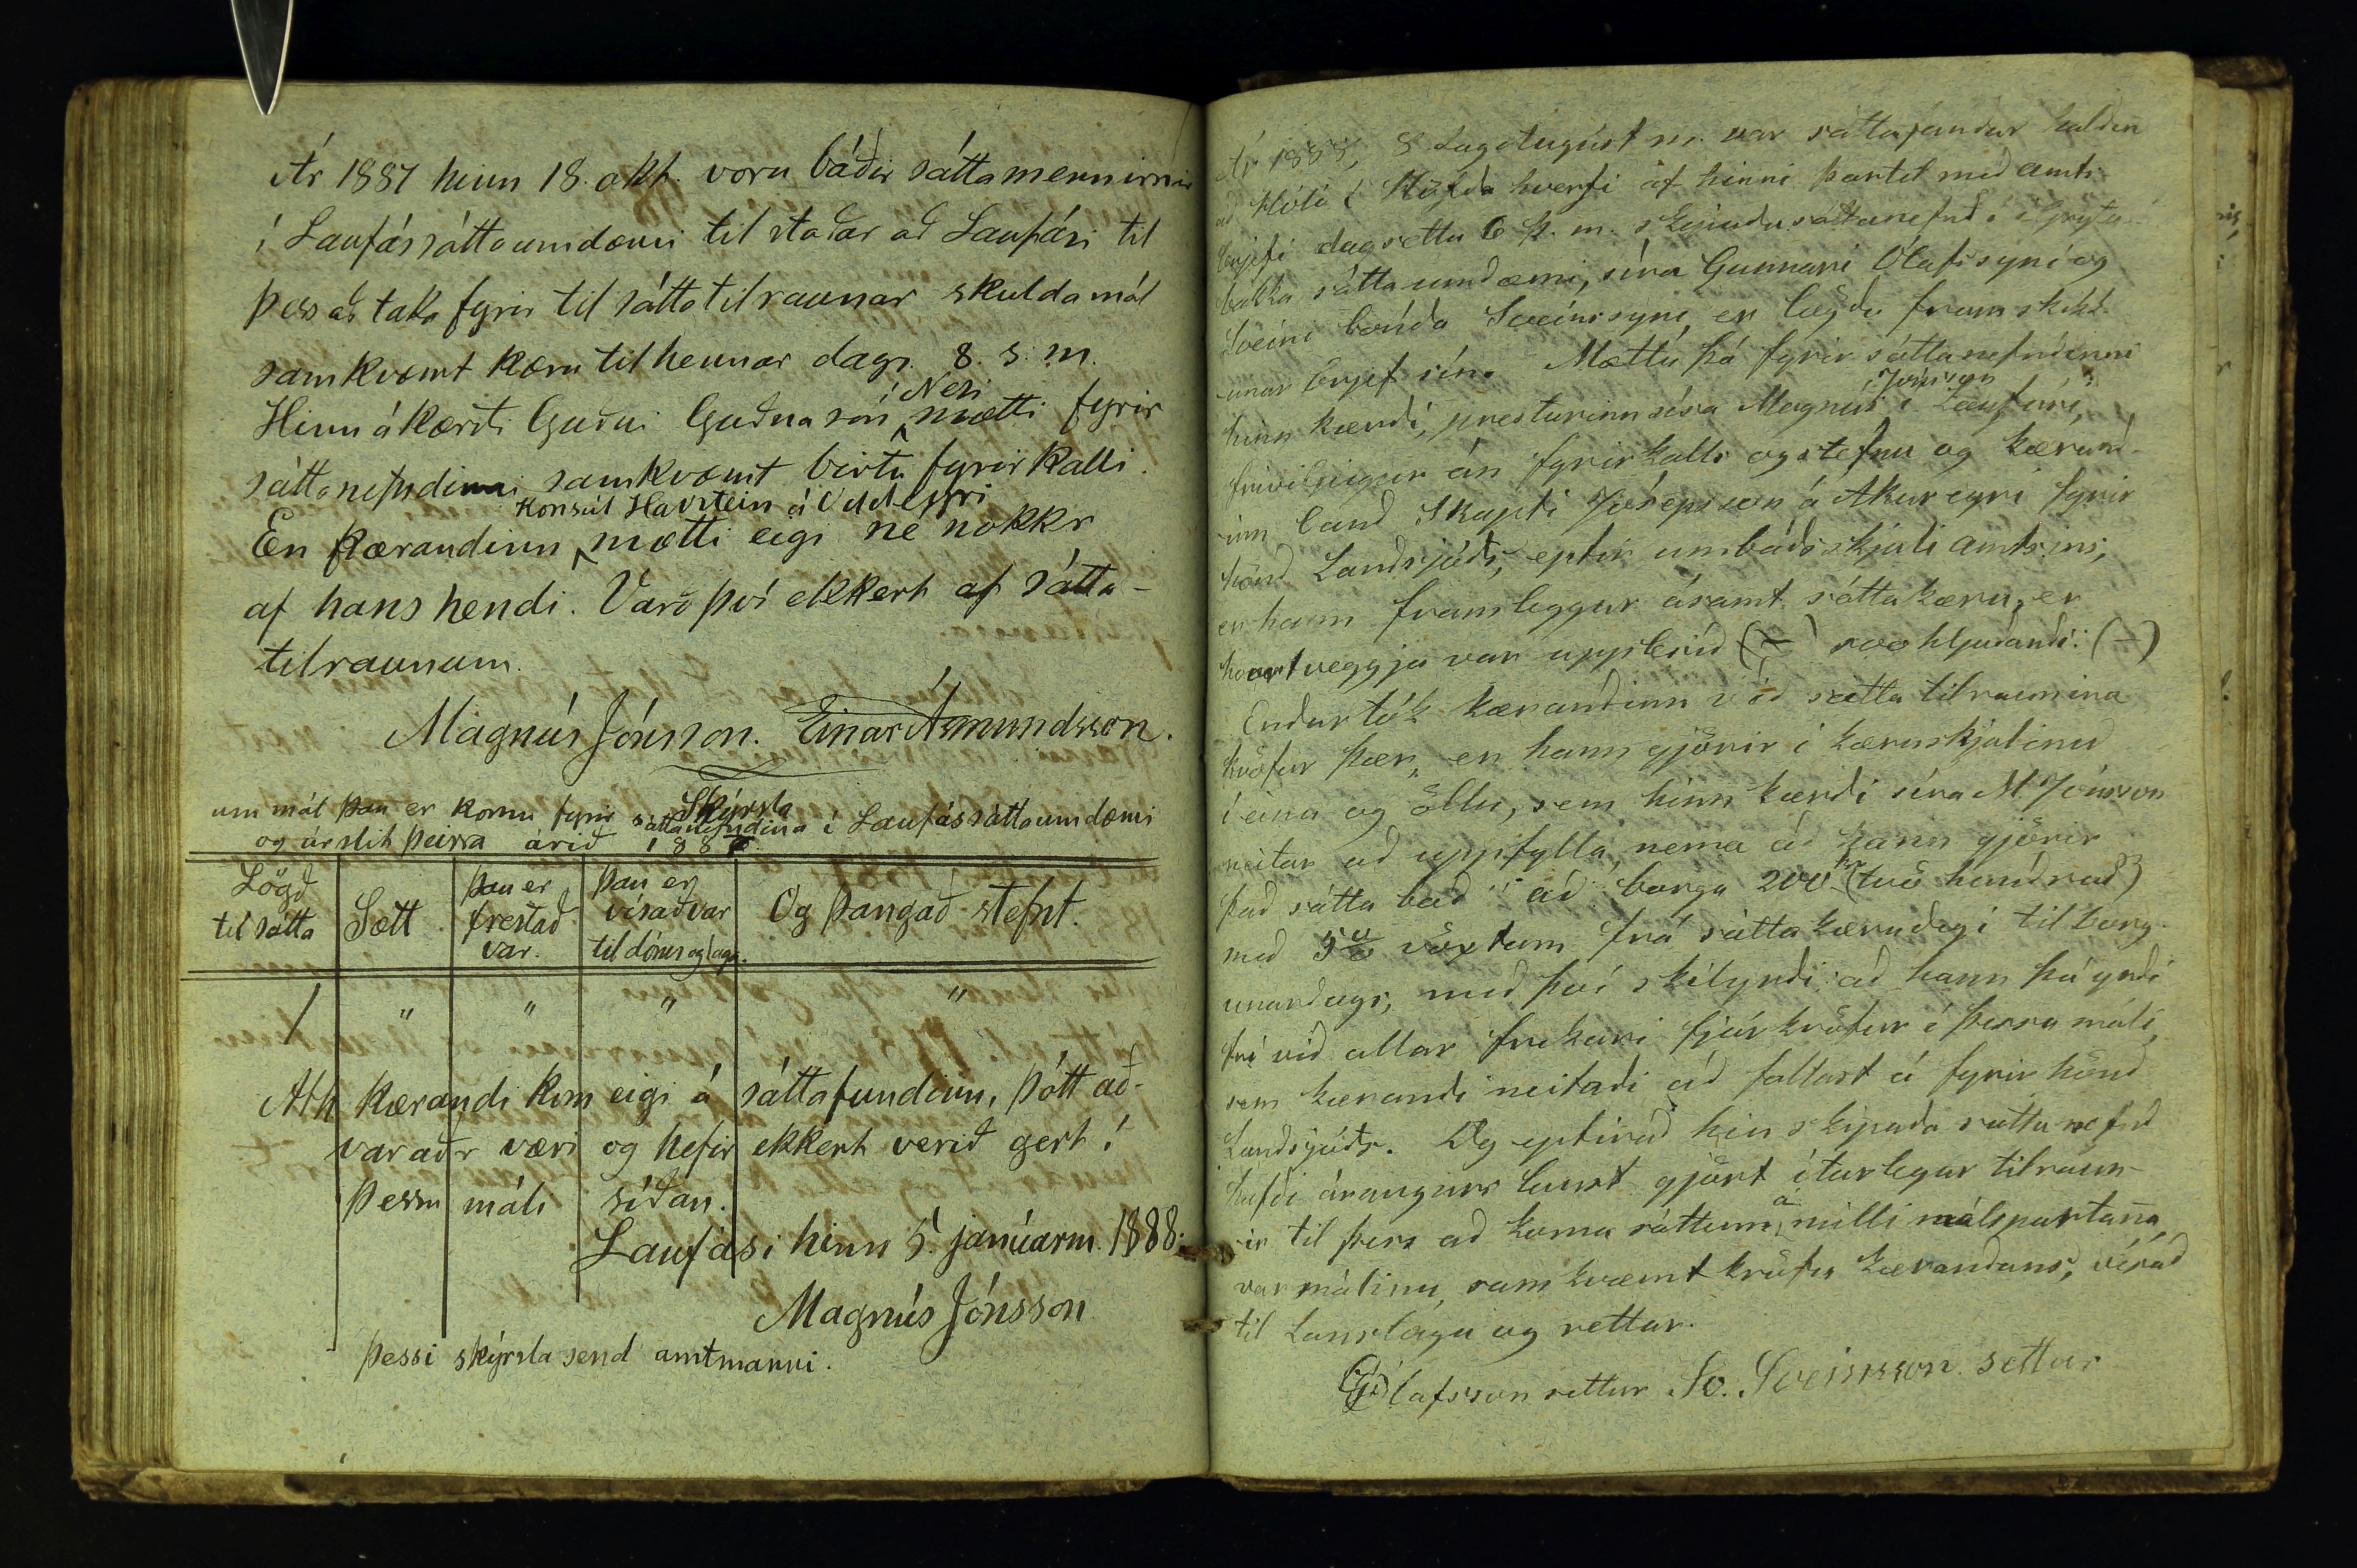 Ár 1887 hinn 18. okt. voru báðir sáttamennirnir
í Laufássáttaumdæmi til staðar að Laufási til
þess að taka fyrir til sáttatilraunar skuldamál
samkvæmt kæru til hennar dags. 8. s. m.
Hinn ákærði Guðni Guðnason í Nesi mætti fyrir
sáttanefndinni samkvæmt birtu fyrirkalli.
En kærandinn Konsúl Havstein á Oddeyri mætti eigi né nokkr
af hans hendi. Varð því ekkert af sátta-
tilraunum.
Magnús Jónsson. Einar Ásmundsson.
Skýrsla
um mál þau er komu fyrir sáttanefndina í Laufássáttaumdæmi
og úrslit þeirra árið 1887.
Lögð til sátta | Sætt | Þau er frestað var. | Þau er vísað var til dóms og laga. | Og þangað stefnt.
1 | " | " | " | "
Ath kærandi kom eigi á sáttafundinn, þótt að-
varaðr væri og hefir ekkert verið gert í
þessu máli síðan.
Laufási hinn 5. janúarm. 1888.
Magnús Jónsson
Þessi skýrsla send amtmanni.
Ár 1888, 8 dag August m. var sáttafundur haldin
að Hóli í Höfðahverfi af hinni þartil með amts-
brjefi dagsettu 6 þ. m. skipuðu sáttanefnd í Grýtu-
bakka sáttaumdæmi, síra Gunnari Ólafssyni og
Sveini bónda Sveinssyni, er lögðu fram skip-
unarbrjef sín. Mættu þá fyrir sáttanefndinni
hinn kærði, presturinn síra Magnús Jónsson í Laufási,
friviljugur án fyrirkalls og stefnu og kærand-
inn cand Skapti Jósepsson á Akureyri fyrir
hönd Landsjóðs, eptir umboðsskjali amtsins,
er hann framleggur ásamt sáttakæru, er
hvortveggja var upplesið svohljóðandi: (-)
Endurtók kærandinn við sáttatilraunina
kröfur þær, er hann gjörir í kæruskjalinu
í einu og öllu, sem hinn kærði síra M Jónsson
neitar að uppfylla, nema að hann gjörir
það sáttaboð að borga 200 kr (tvö hundruð)
með 5% vöxtum frá sáttakærudegi til borg-
unardags, með því skilyrði að hann þá yrði
frí við allar frekari fjárkröfur í þessu máli,
sem kærandi neitaði að fallast á fyrir hönd
Landsjóðs. Og eptirað hin skipaða sáttanefnd
hafði árangurslaust gjört ítarlegar tilraun-
ir til þess að koma sáttum á milli málspartanna,
var málinu, samkvæmt kröfu kærandans, vísað
til Landslaga og rettar.
G Ólafsson settur Sv. Sveinsson settur